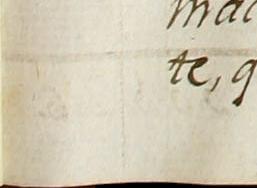 mad
te, q